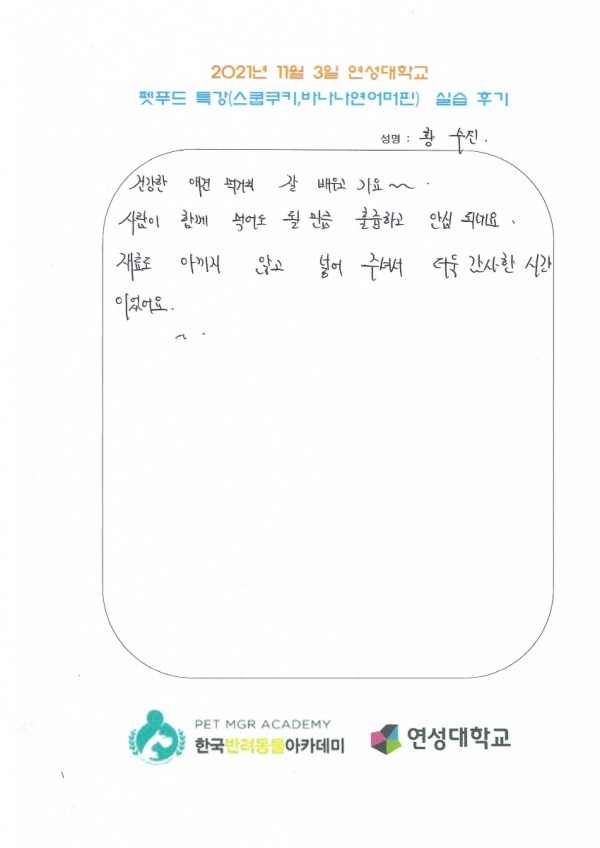 2021년 11월 3일 연성대학교
펫푸드 특강(스쿱쿠키,바나나연어머핀) 실습 후기
성명 : 황 수진.
건강한 애견 먹거리 잘 배우고 가요~.
사람이 함께 먹어도 될 만큼 훌륭하고 안심 되네요.
재료도 아끼지 않고 넣어 주셔서 더욱 감사한 시간
이었어요.
~.
PET MGR ACADEMY
한국반려동물아카데미
연성대학교